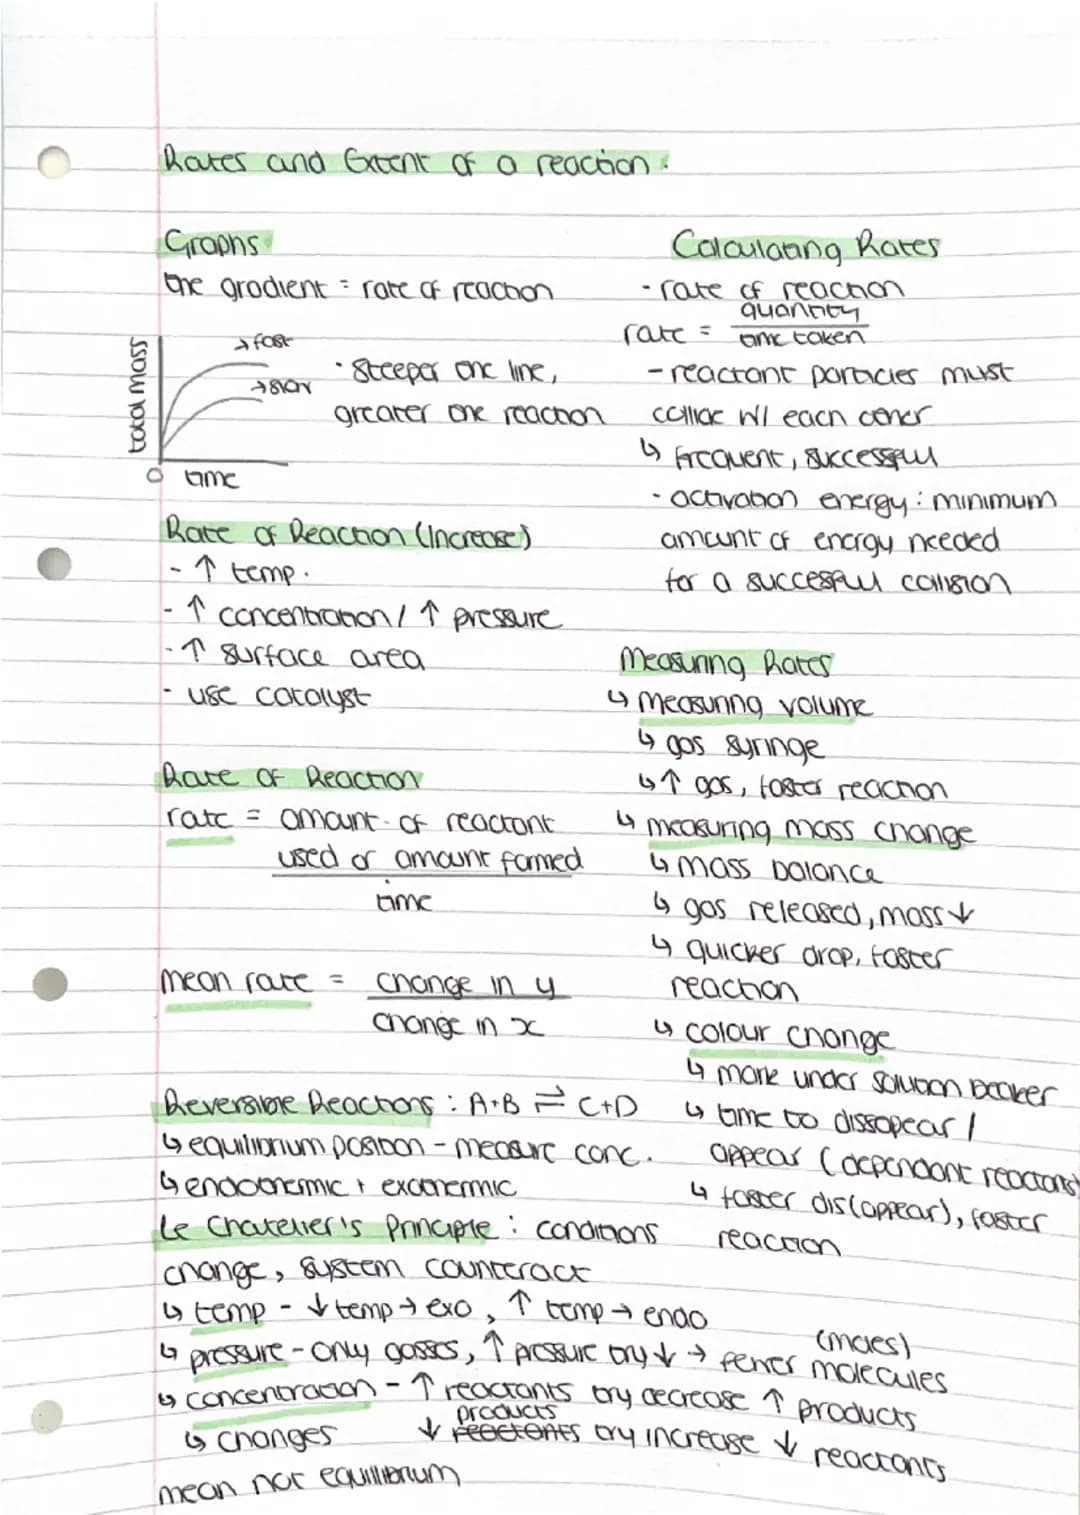 Rates and Extent of a reaction:
Graphs
the gradient = rate of reaction
total mass
→ fast
→ slow
0 time
· Steeper the line,
greater the reaction
Rate of Reaction (Increase)
- ↑ temp.
- ↑ concentration / ↑ pressure
- ↑ surface area
- use catalyst
Rate of Reaction
rate = amount of reactant
used or amount formed
time
mean rate = change in y
change in x
Calculating Rates
· rate of reaction
rate = quantity
time taken
- reactant particles must
collide w/ each other
↳ frequent, successful
· activation energy: minimum
amount of energy needed
for a succesful collision
Measuring Rates
↳ measuring volume
↳ gas syringe
↳ ↑ gas, faster reaction
↳ measuring mass change
↳ mass balance
↳ gas released, mass ↓
↳ quicker drop, faster
reaction
↳ colour change
↳ mark under solution beaker
↳ time to dissapear /
appear (dependant reactions)
↳ faster dis(appear), faster
reaction
Reversible Reactions : A+B ⇌ C+D
↳ equilibrium position - measure conc.
↳ endothermic + exothermic
Le Chatelier's Principle : conditions
change, system counteract
↳ temp - ↓ temp → exo, ↑ temp → endo
↳ pressure - only gasses, ↑ pressure try ↓ → fewer molecules
(moles)
↳ concentration - ↑ reactants try decrease ↑ products
↳ changes ↓ products reactants try increase ↓ reactants
mean not equilibrium